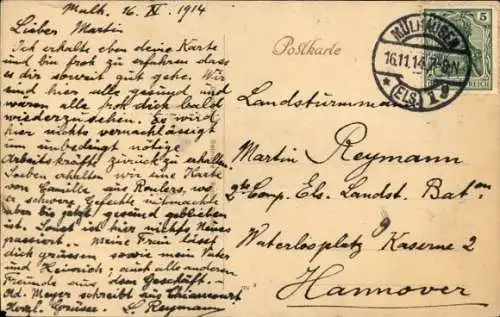 Mülh. 16. XI. 1914
Lieber Martin
Ich erhalte eben deine Karte
und bin froh zu erfahren dass
es dir soweit gut geht. Wir
sind hier alle gesund und
wären alle froh dich bald
wiederzusehen. Es wird
hier nichts vernachlässigt
um unbedingt nötige
Arbeitskräfte zurück zu erhalten.
Soeben erhalten wir eine Karte
von Camille aus Roulers, wo
er schwere Gefechte mitmachte
aber bis jetzt gesund geblieben
ist. Sonst ist hier nichts Neues
passiert. Meine Frau lässt
dich grüssen sowie mein Vater
und Heinrich; auch alle anderen
Freunde aus dem Geschäft.
Old. Meyer schreibt aus
Herzl. Grüsse. L. Reymann
Postkarte
MÜLHAUSEN
16.11.14. 8-9 N
(ELS.) 1
5
REICH
Landsturmmann
Martin Reymann
2te Comp. Els. Landst. Baton
Waterlooplatz Kaserne 2
Hannover